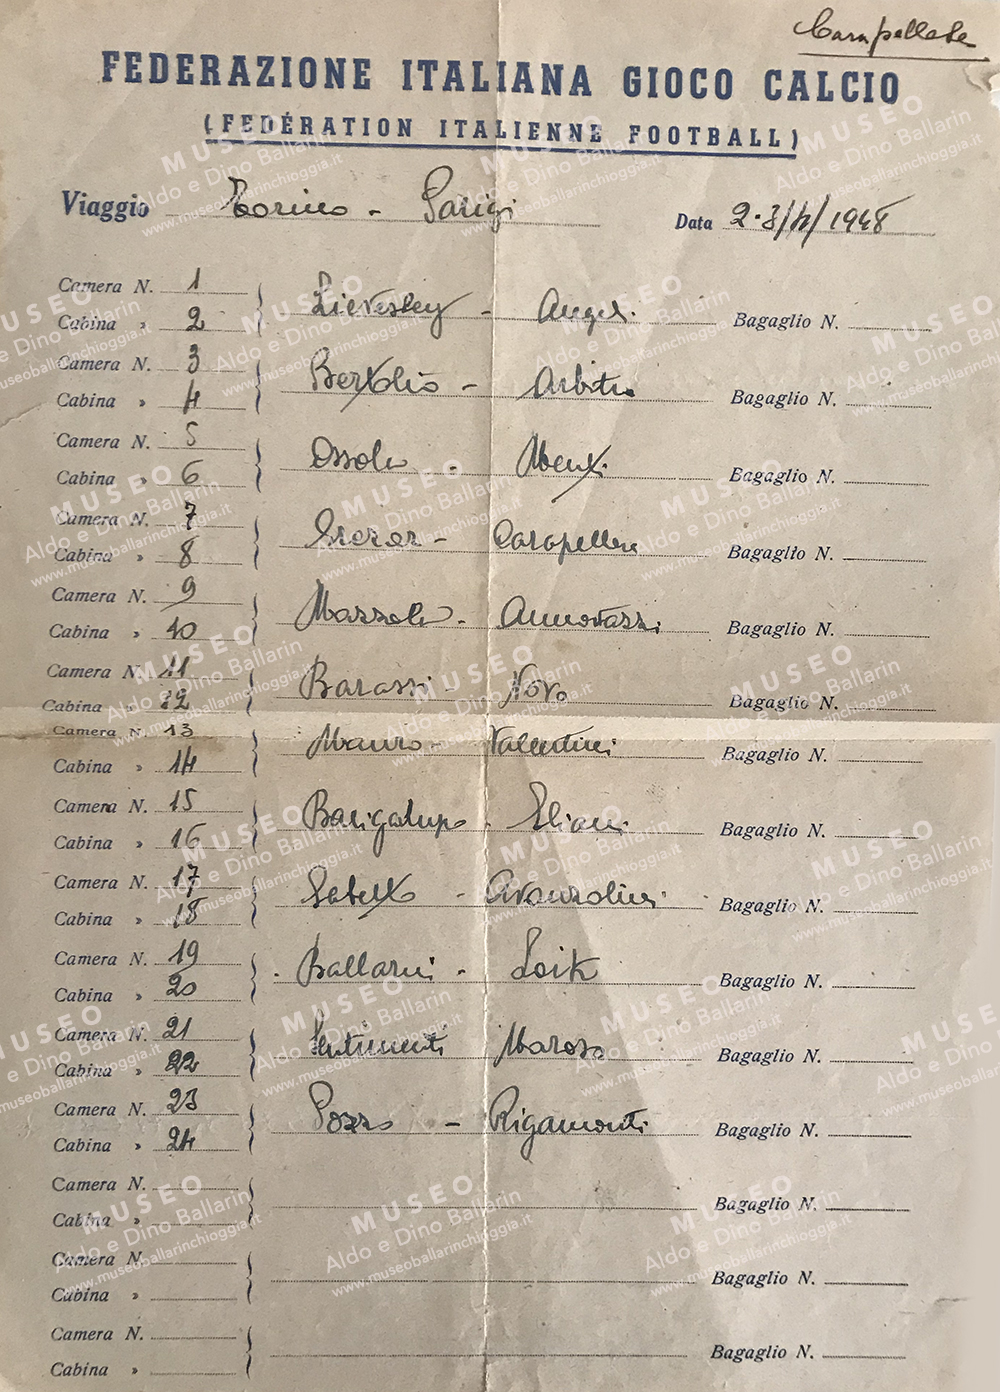 Carapellese
FEDERAZIONE ITALIANA GIOCO CALCIO
(FEDÉRATION ITALIENNE FOOTBALL)
Viaggio Torino - Parigi Data 2-3/4/1948
Camera N. 1
Lievesley - Angel. Bagaglio N.
Cabina » 2
Camera N. 3
Bertolio - Arbitro Bagaglio N.
Cabina » 4
Camera N. 5
Ossola - Menti Bagaglio N.
Cabina » 6
Camera N. 7
Grezar - Carapellese Bagaglio N.
Cabina » 8
Camera N. 9
Mazzola - Annovazzi Bagaglio N.
Cabina » 10
Camera N. 11
Barassi - Novo Bagaglio N.
Cabina » 12
Camera N. 13
Mauro - Valentini Bagaglio N.
Cabina » 14
Camera N. 15
Bacigalupo - Eliani Bagaglio N.
Cabina » 16
Camera N. 17
Gabetto - Avanzolini Bagaglio N.
Cabina » 18
Camera N. 19
Ballarin - Loik Bagaglio N.
Cabina » 20
Camera N. 21
Sentimenti Maroso Bagaglio N.
Cabina » 22
Camera N. 23
Pozzo - Rigamonti Bagaglio N.
Cabina » 24
Camera N.
Bagaglio N.
Cabina »
Camera N.
Bagaglio N.
Cabina »
Camera N.
Bagaglio N.
Cabina »
MUSEO
Aldo e Dino Ballarin
www.museoballarinchioggia.it